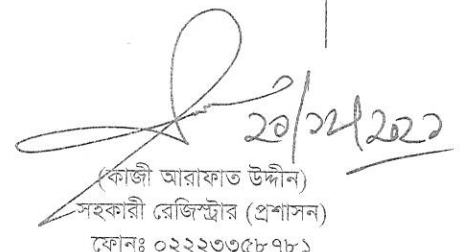 ২০/১২/২০২১
(কাজী আরাফাত উদ্দীন)
সহকারী রেজিস্ট্রার (প্রশাসন)
ফোনঃ ০২২২৩৩৫৮৭৮১